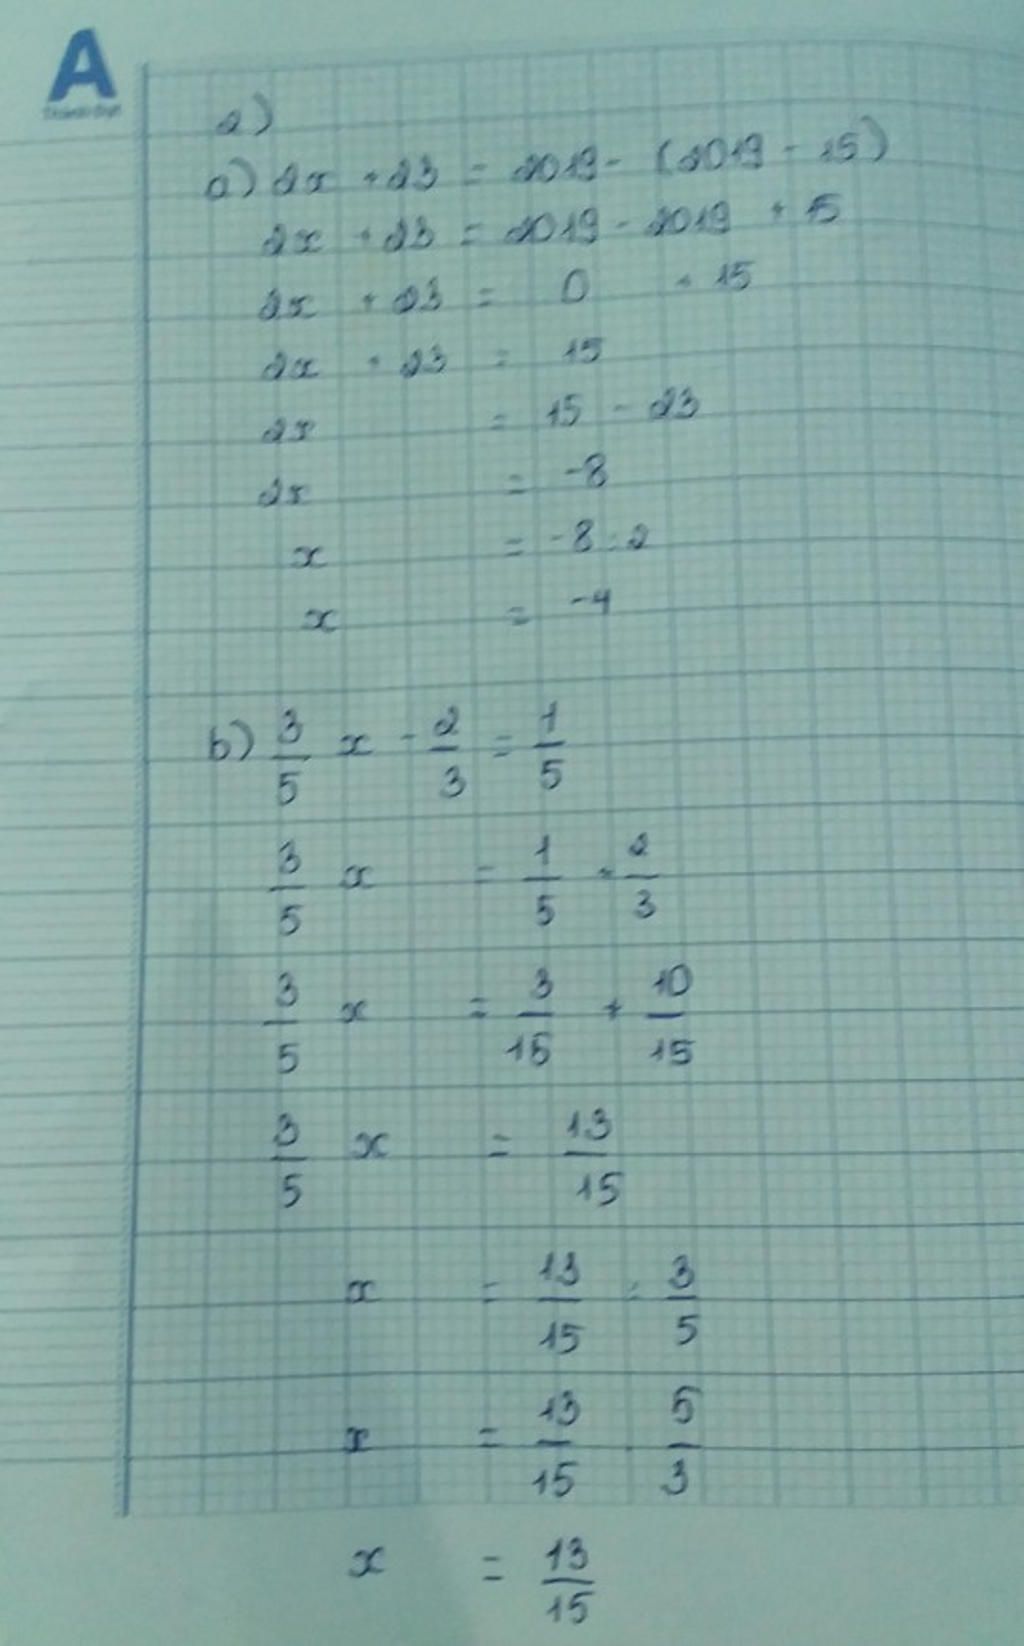 A
2)
a) 2x + 23 = 2019 - (2019 - 15)
2x + 23 = 2019 - 2019 + 15
2x + 23 = 0 + 15
2x + 23 = 15
2x = 15 - 23
2x = -8
x = -8 : 2
x = -4
b) 3/5 x - 2/3 = 1/5
3/5 x = 1/5 + 2/3
3/5 x = 3/15 + 10/15
3/5 x = 13/15
x = 13/15 : 3/5
x = 13/15 . 5/3
x = 13/15